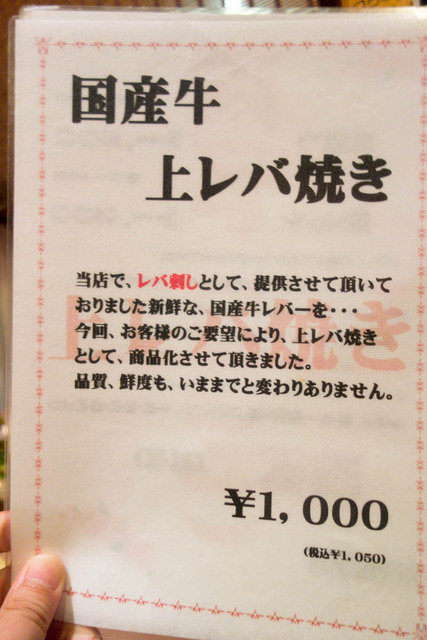 国産牛
上レバ焼き
当店で、レバ刺しとして、提供させて頂いて
おりました新鮮な、国産牛レバーを・・・
今回、お客様のご要望により、上レバ焼き
として、商品化させて頂きました。
品質、鮮度も、いままでと変わりありません。
￥1,000
(税込￥1,050)